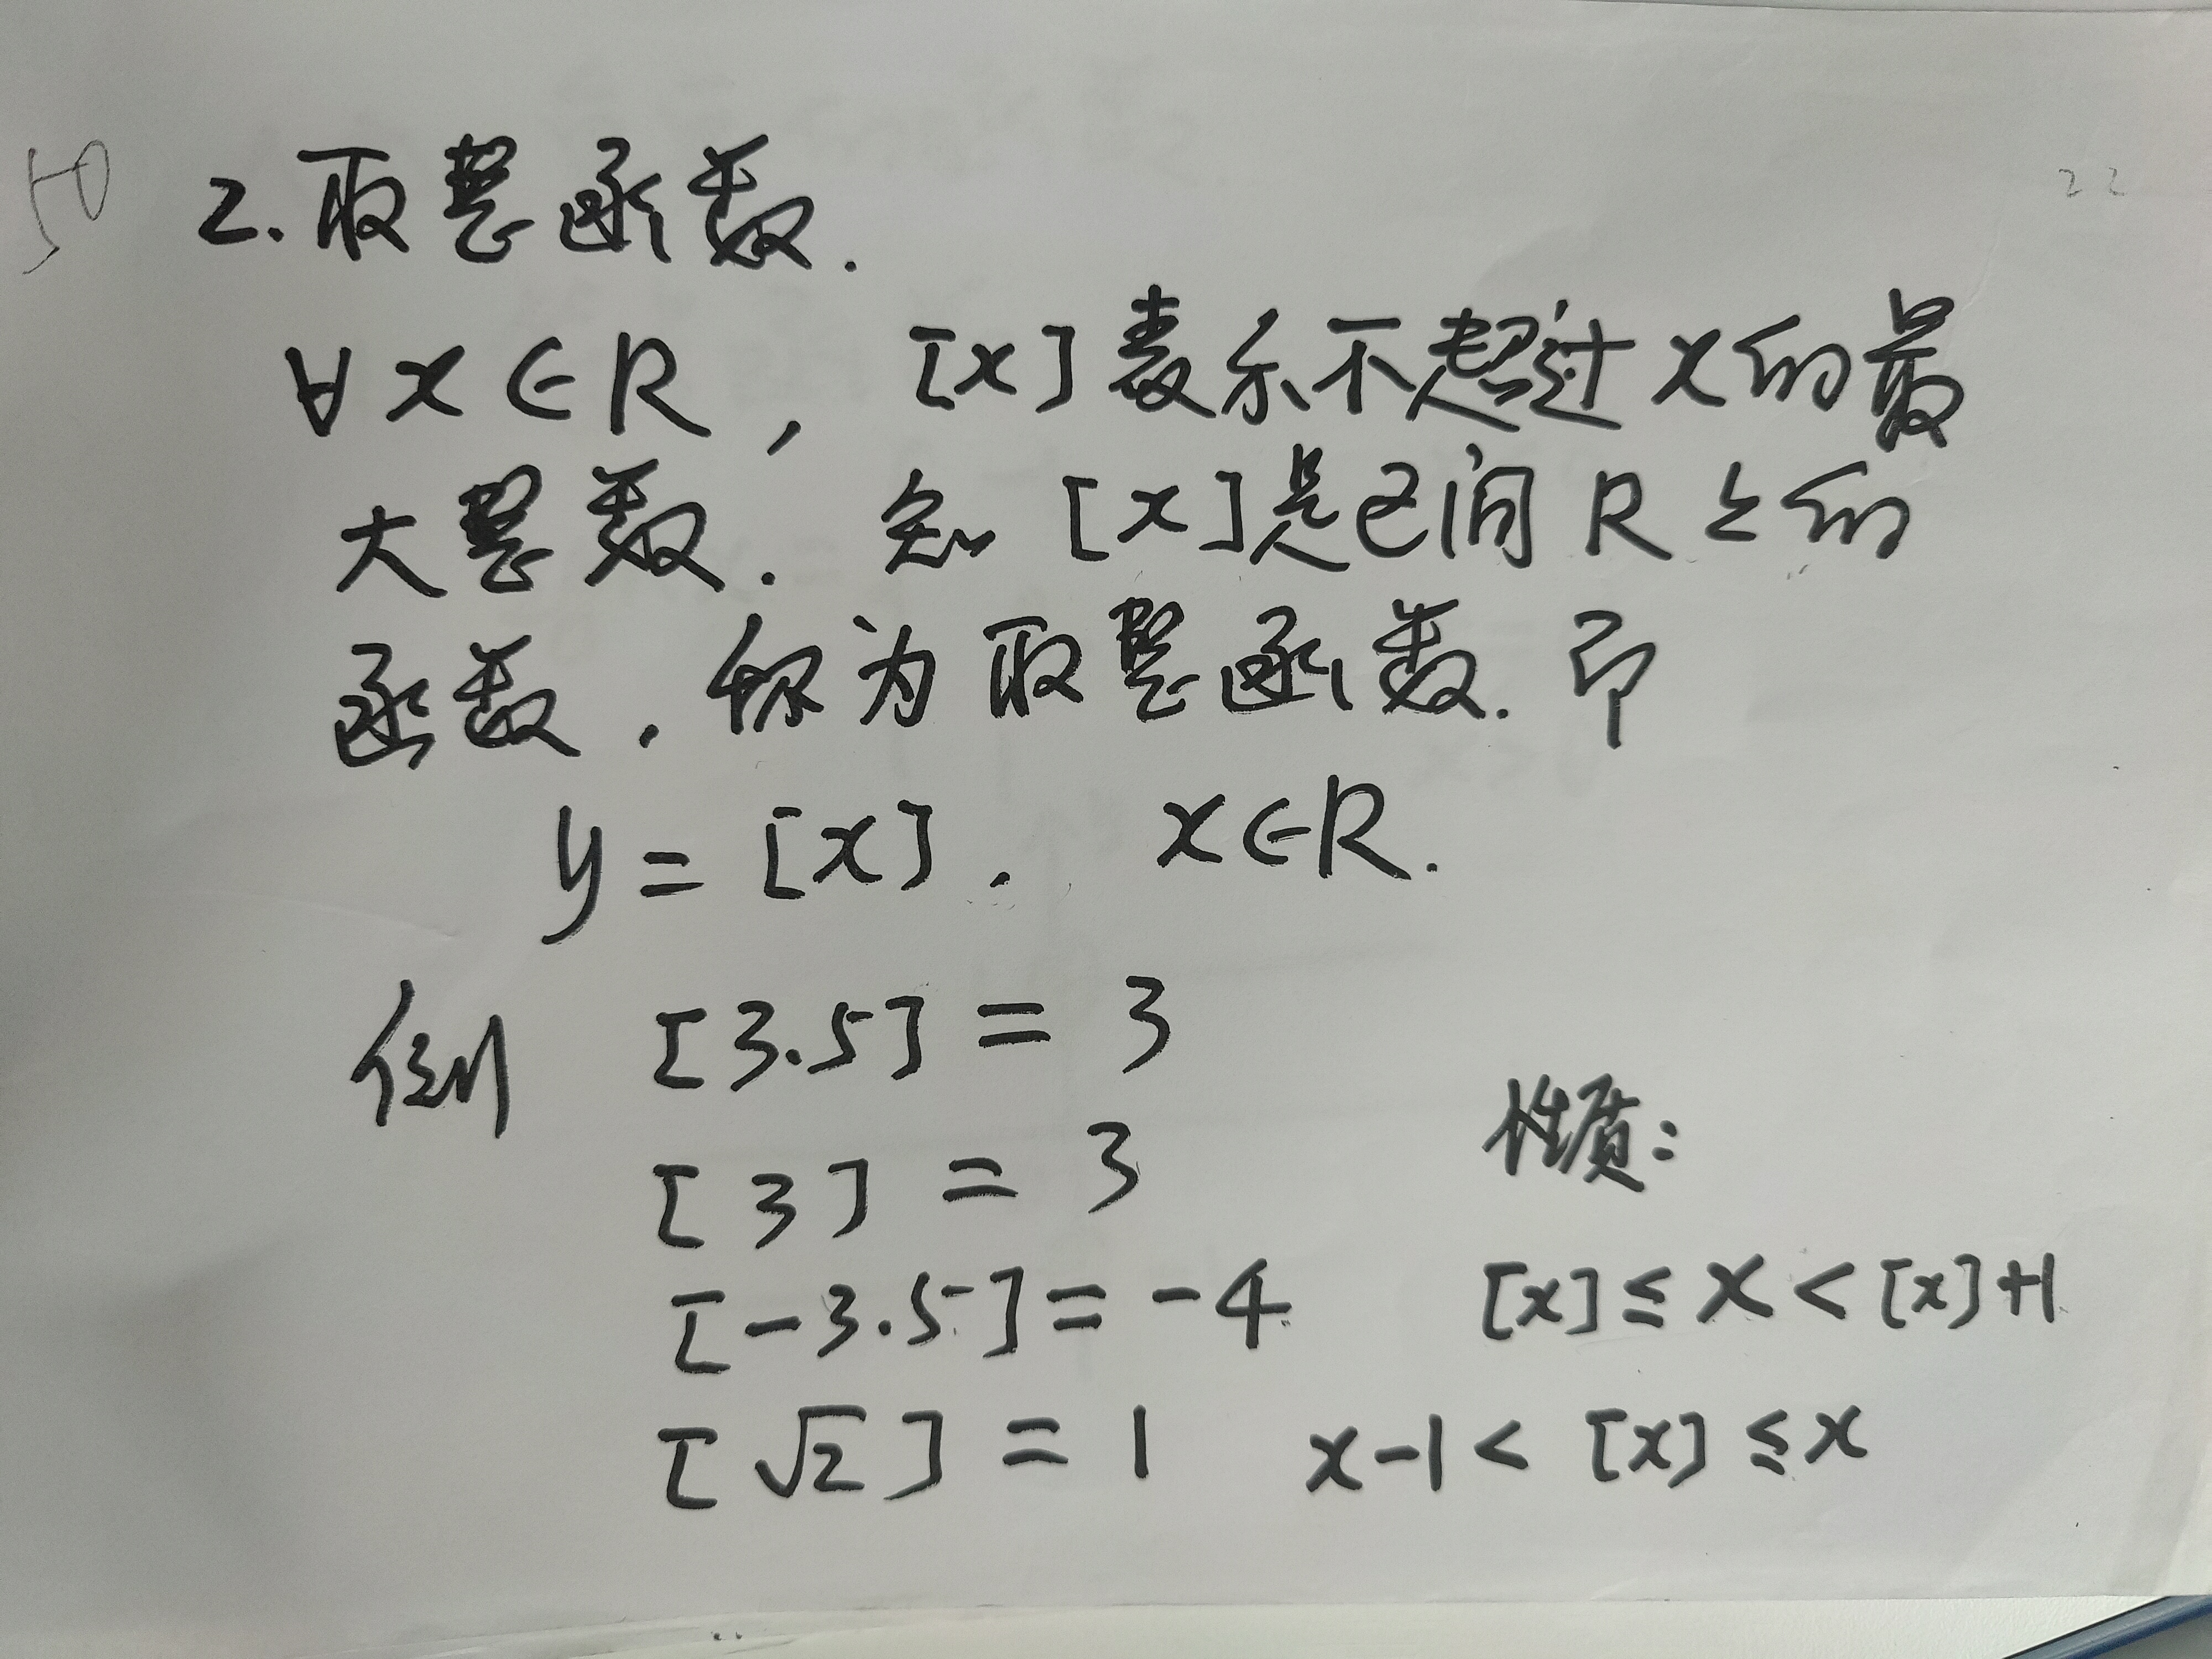 50
22
2. 取整函数.
∀ x ∈ R, [x] 表示不超过 x 的最
大整数. 知 [x] 是区间 R 上的
函数, 称为取整函数. 即
y = [x], x ∈ R.
例 [3.5] = 3
[3] = 3
[-3.5] = -4
[√2] = 1
性质:
[x] ≤ x < [x]+1
x-1 < [x] ≤ x